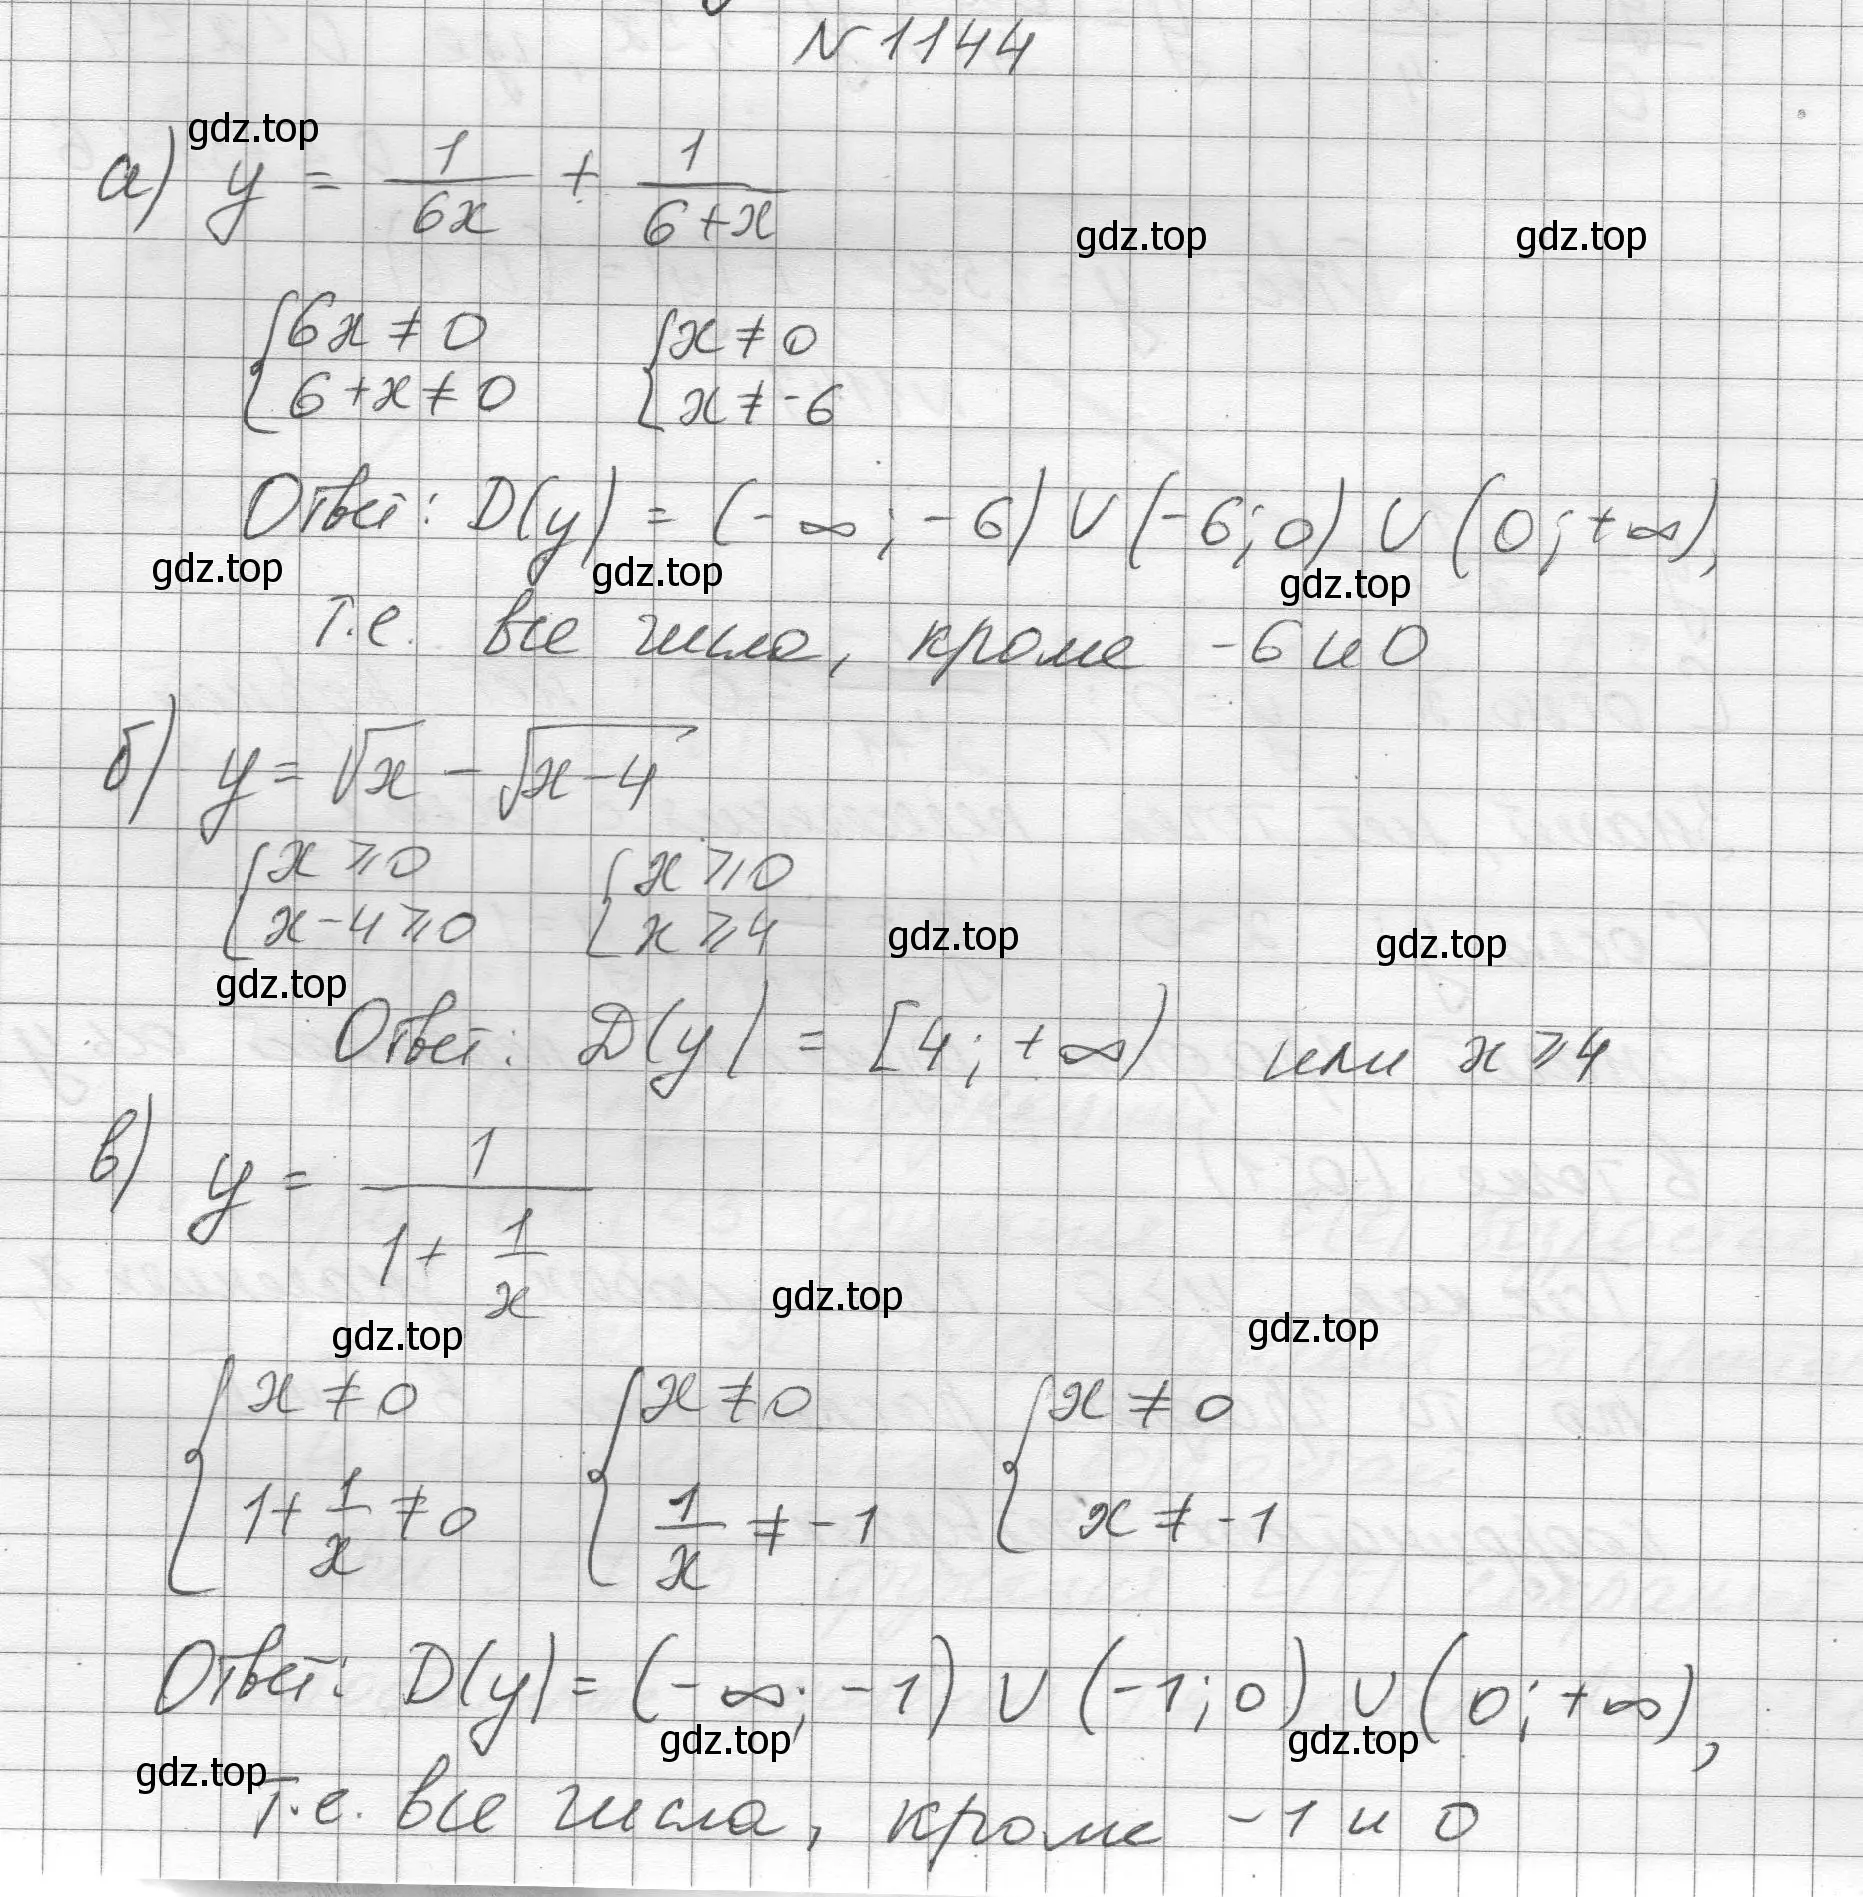 N 1144
gdz.top
а) y = 1/(6x) + 1/(6+x)
gdz.top gdz.top
{6x ≠ 0 {x ≠ 0
{6+x ≠ 0 {x ≠ -6
Ответ: D(y) = (-∞; -6) ∪ (-6; 0) ∪ (0; +∞),
gdz.top gdz.top gdz.top
т.е. все числа, кроме -6 и 0
б) y = √x - √(x-4)
{x ⩾ 0 {x ⩾ 0
{x-4 ⩾ 0 {x ⩾ 4
gdz.top gdz.top
gdz.top
Ответ: D(y) = [4; +∞) или x ⩾ 4
в) y = 1/(1 + 1/x)
gdz.top gdz.top gdz.top
{x ≠ 0 {x ≠ 0 {x ≠ 0
{1 + 1/x ≠ 0 {1/x ≠ -1 {x ≠ -1
Ответ: D(y) = (-∞; -1) ∪ (-1; 0) ∪ (0; +∞),
gdz.top gdz.top
gdz.top
т.е. все числа, кроме -1 и 0